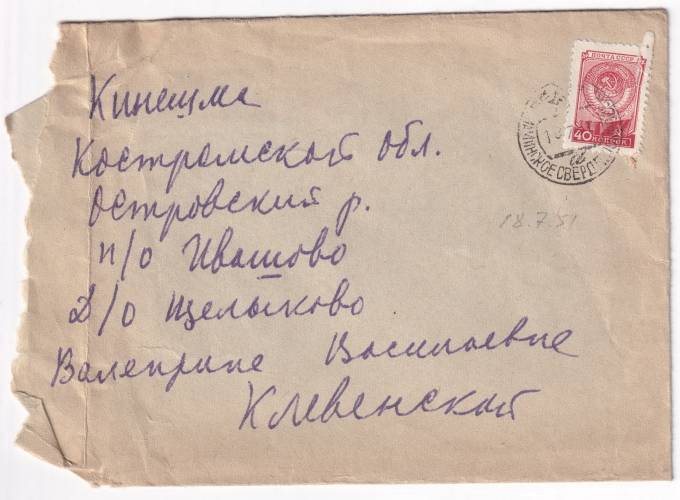 Кинешма
Костромской обл.
Островский р.
п/о Ивашово
Д/о Щелыково
Валентине Васильевне
Клевенской
ПОЧТА СССР
40 КОПЕЕК
18.7.51